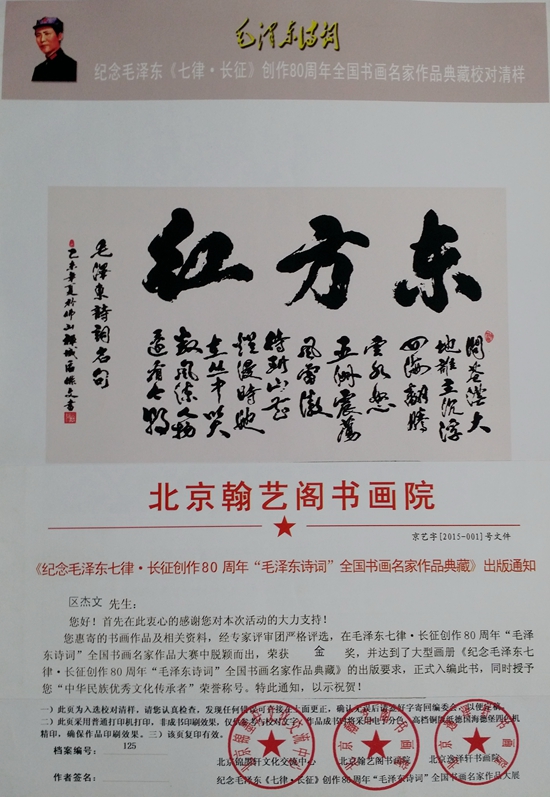 毛泽东诗词
纪念毛泽东《七律·长征》创作80周年全国书画名家作品典藏校对清样
东方红
問苍茫大
地谁主沉浮
四海翻腾
雲水怒
五洲震荡
风雷激
待到山花
烂漫时她
在丛中笑
数风流人物
还看今朝
毛澤東詩詞名句
乙未年夏於佛山禅城区杰文書
北京翰艺阁书画院
京艺字[2015-001]号文件
《纪念毛泽东七律·长征创作80 周年“毛泽东诗词”全国书画名家作品典藏》出版通知
区杰文 先生:
您好!首先在此衷心的感谢您对本次活动的大力支持!
您惠寄的书画作品及相关资料,经专家评审团严格评选,在毛泽东七律·长征创作80 周年“毛泽
东诗词”全国书画名家作品大赛中脱颖而出,荣获 金 奖,并达到了大型画册《纪念毛泽东七
律·长征创作80 周年“毛泽东诗词”全国书画名家作品典藏》的出版要求,正式入编此书,同时授予
您“中华民族优秀文化传承者”荣誉称号。特此通知,以示祝贺!
一)此页为入选校对清样,请您认真检查,发现任何错误可直接在上面更正,确认无误后请签好字寄回编委会,以便定稿。
二)此页采用普通打印机打印,非成书印刷效果,仅供参考与校对文字,作品成书时将采用电子分色,高档铜版纸德国海德堡四色机
精印,确保作品印刷效果。三)该页复印有效。
档案编号: 125
北京锦墨轩文化交流中心 北京翰艺阁书画院 北京逸泽轩书画院
作者签名:
纪念毛泽东《七律·长征》创作80周年“毛泽东诗词”全国书画名家作品大展